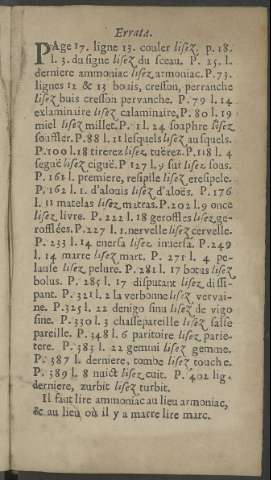 Errata.
PAge 17. ligne 13. couler lisez, p. 18.
l. 3. du signe lisez du sceau. P. 25. l.
derniere ammoniac lisez armoniac. P. 73.
lignes 12 & 13 bouis, cresson, perranche
lisez buis cresson pervanche. P. 79 l. 14
exlaminaire lisez calaminaire, P. 80 l. 19
miel lisez millet. P. 1 l. 24 soaphre lisez
souffler. P. 88 l. 21 lesquels lisez ausquels.
P. 100 l. 18 tirerez lisez tuërez. P. 118 l. 4
segue lisez ciguë. P 127 l. 9 sur lisez sous.
P. 161 l. premiere, resipile lisez eresipele.
P. 162 l. 1. d'alouis lisez d'aloës. P. 176
l. 11 matelas lisez matras. P. 202 l. 9 once
lisez livre. P. 222 l. 18 geroffles lisez ge-
rofflées. P. 227 l. 1. nervelle lisez cervelle.
P. 233 l. 14 enersa lisez inversa. P. 249
l. 14 marre lisez marc. P. 271 l. 4 pe-
lause lisez pelure. P. 281 l. 17 botus lisez
bolus. P. 285 l. 17 disputant lisez dissi-
pant. P. 321 l. 2 la verbonne lisez vervai-
ne. P. 325 l. 22 denigo sinu lisez de vigo
sine. P. 330 l. 3 chassepareille lisez salse
pareille. P. 348 l. 6 paritoire lisez parie-
tere. P. 383 l. 22 gemini lisez gemme.
P. 387 l. derniere, tombe lisez touche.
P. 389 l. 8 nuict lisez cuit. P. 402 lig.
derniere, zurbit lisez turbit.
Il faut lire ammoniac au lieu armoniac,
& au lieu où il y a marre lire marc.